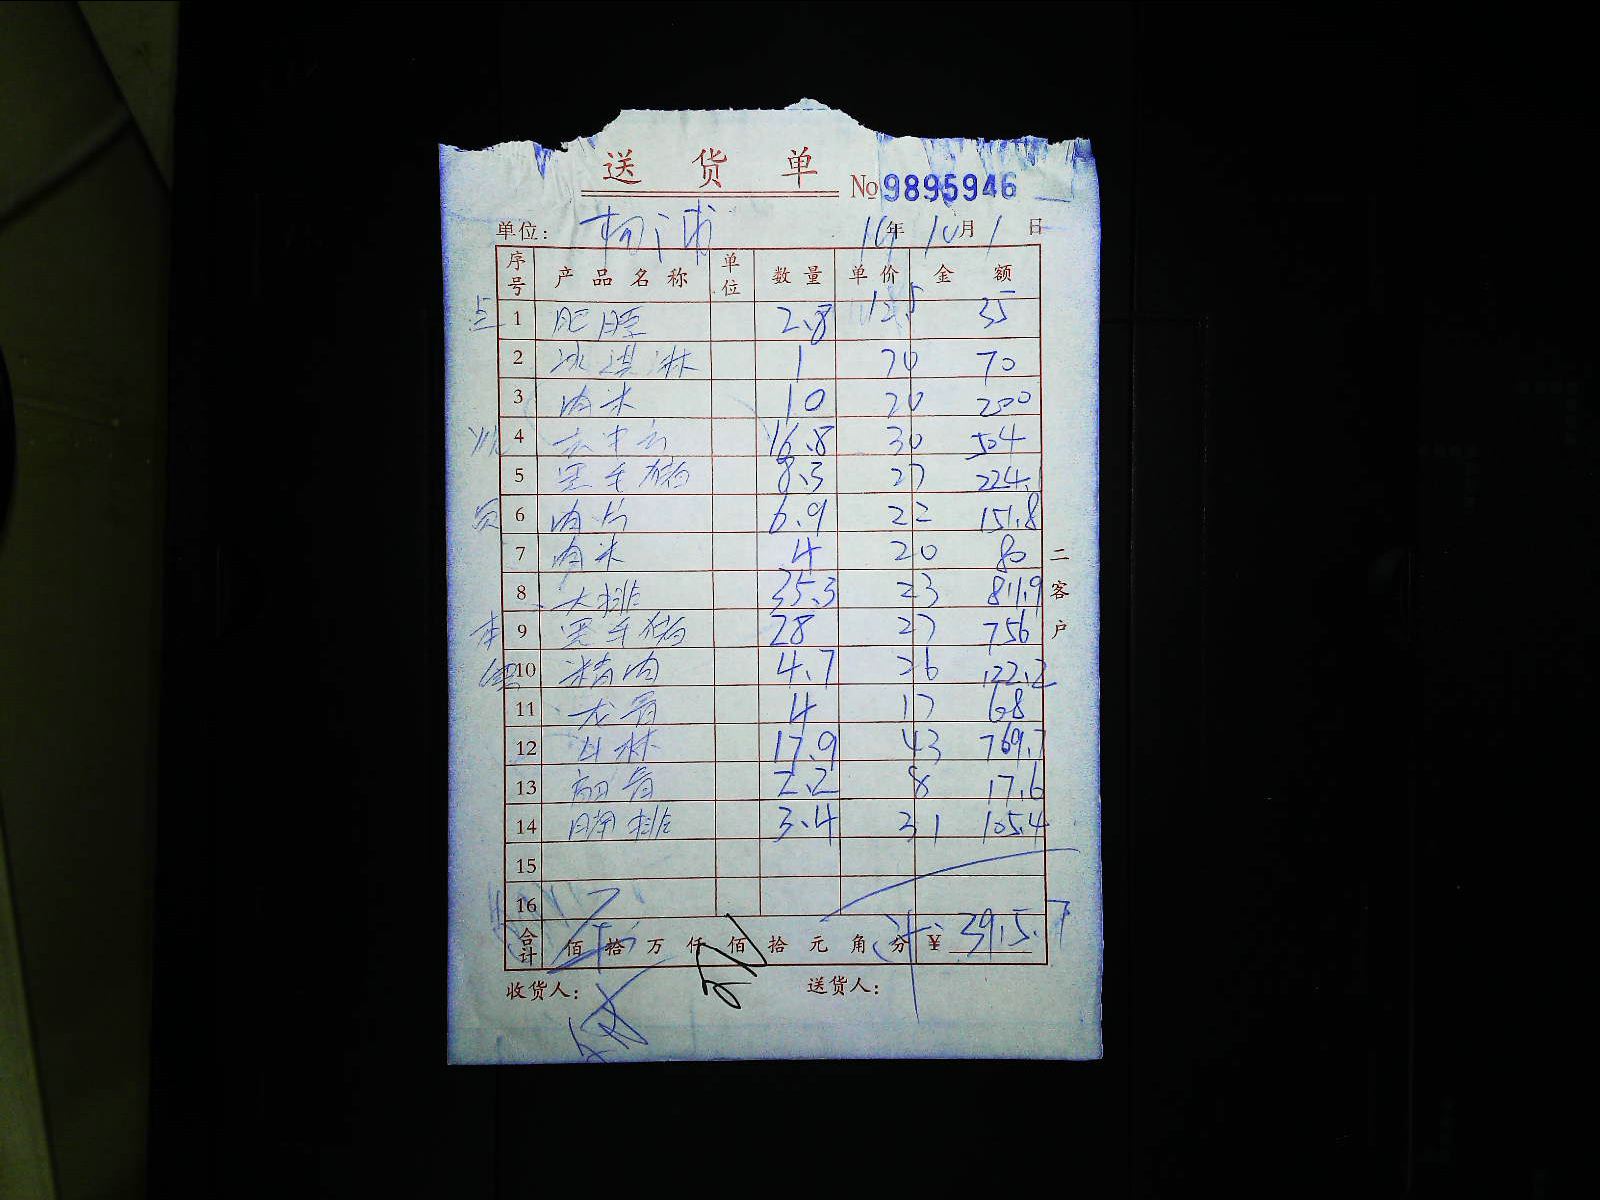 送货单 No 9895946
单位: 杨浦 16年10月1日
序号 产品名称 单位 数量 单价 金额
点 1 肥膘 2.8 12.5 35
2 冰淇淋 1 70 70
3 肉米 10 20 200
4 16.8 30 504
5 黑毛猪 8.3 27 224.1
6 肉片 6.9 22 151.8
7 肉米 4 20 80
8 大排 35.3 23 811.9
9 黑毛猪 28 27 756
10 精肉 4.7 26 122.2
11 龙骨 4 17 68
12 17.9 43 769.7
13 2.2 8 17.6
14 排 3.4 31 105.4
15
16
合计 佰拾万仟佰拾元角分 ¥ 3915.7
收货人: 送货人:
二客户